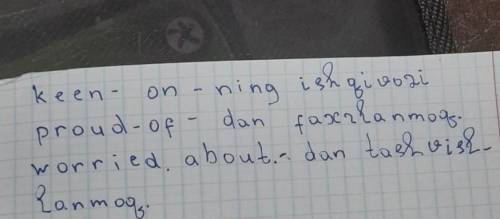 keen - on - ning ishqivozi
proud - of - dan faxrlanmoq.
worried. about. - dan tashvish-
lanmoq.